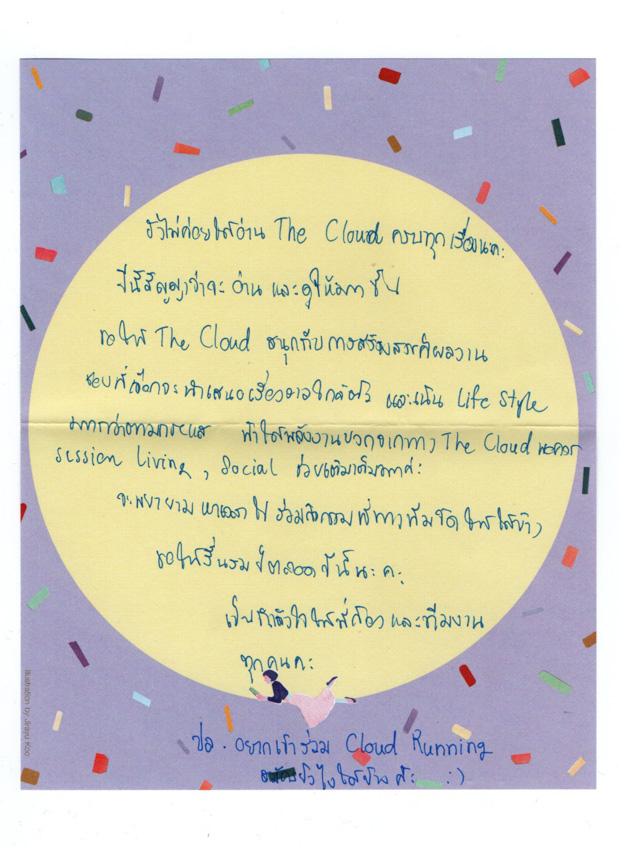 ยังไม่ค่อยได้อ่าน The Cloud ครบทุกเรื่องนะคะ
ปีนี้สัญญาว่าจะ อ่าน และดูให้มากขึ้น
ขอให้ The Cloud สนุกกับการสร้างสรรค์ผลงาน
ชอบที่เลือกจะนำเสนอเรื่องราวใกล้ตัว และเน้น Life Style
มากกว่าตามกระแส ทำให้พลังงานบวกจากทาง The Cloud
session Living, Social ช่วยเติมเต็มมากค่ะ
จะพยายาม หาเวลาไปร่วมกิจกรรมที่ทางทีมจัดให้ได้บ้าง
ขอให้รื่นรมย์ตลอดปีนี้นะคะ
เป็นกำลังใจให้พี่ก้อง และทีมงาน
ทุกคนค่ะ
ปล. อยากเข้าร่วม Cloud Running
ยังไงได้บ้างคะ :)
Illustration by Jeayu Koo